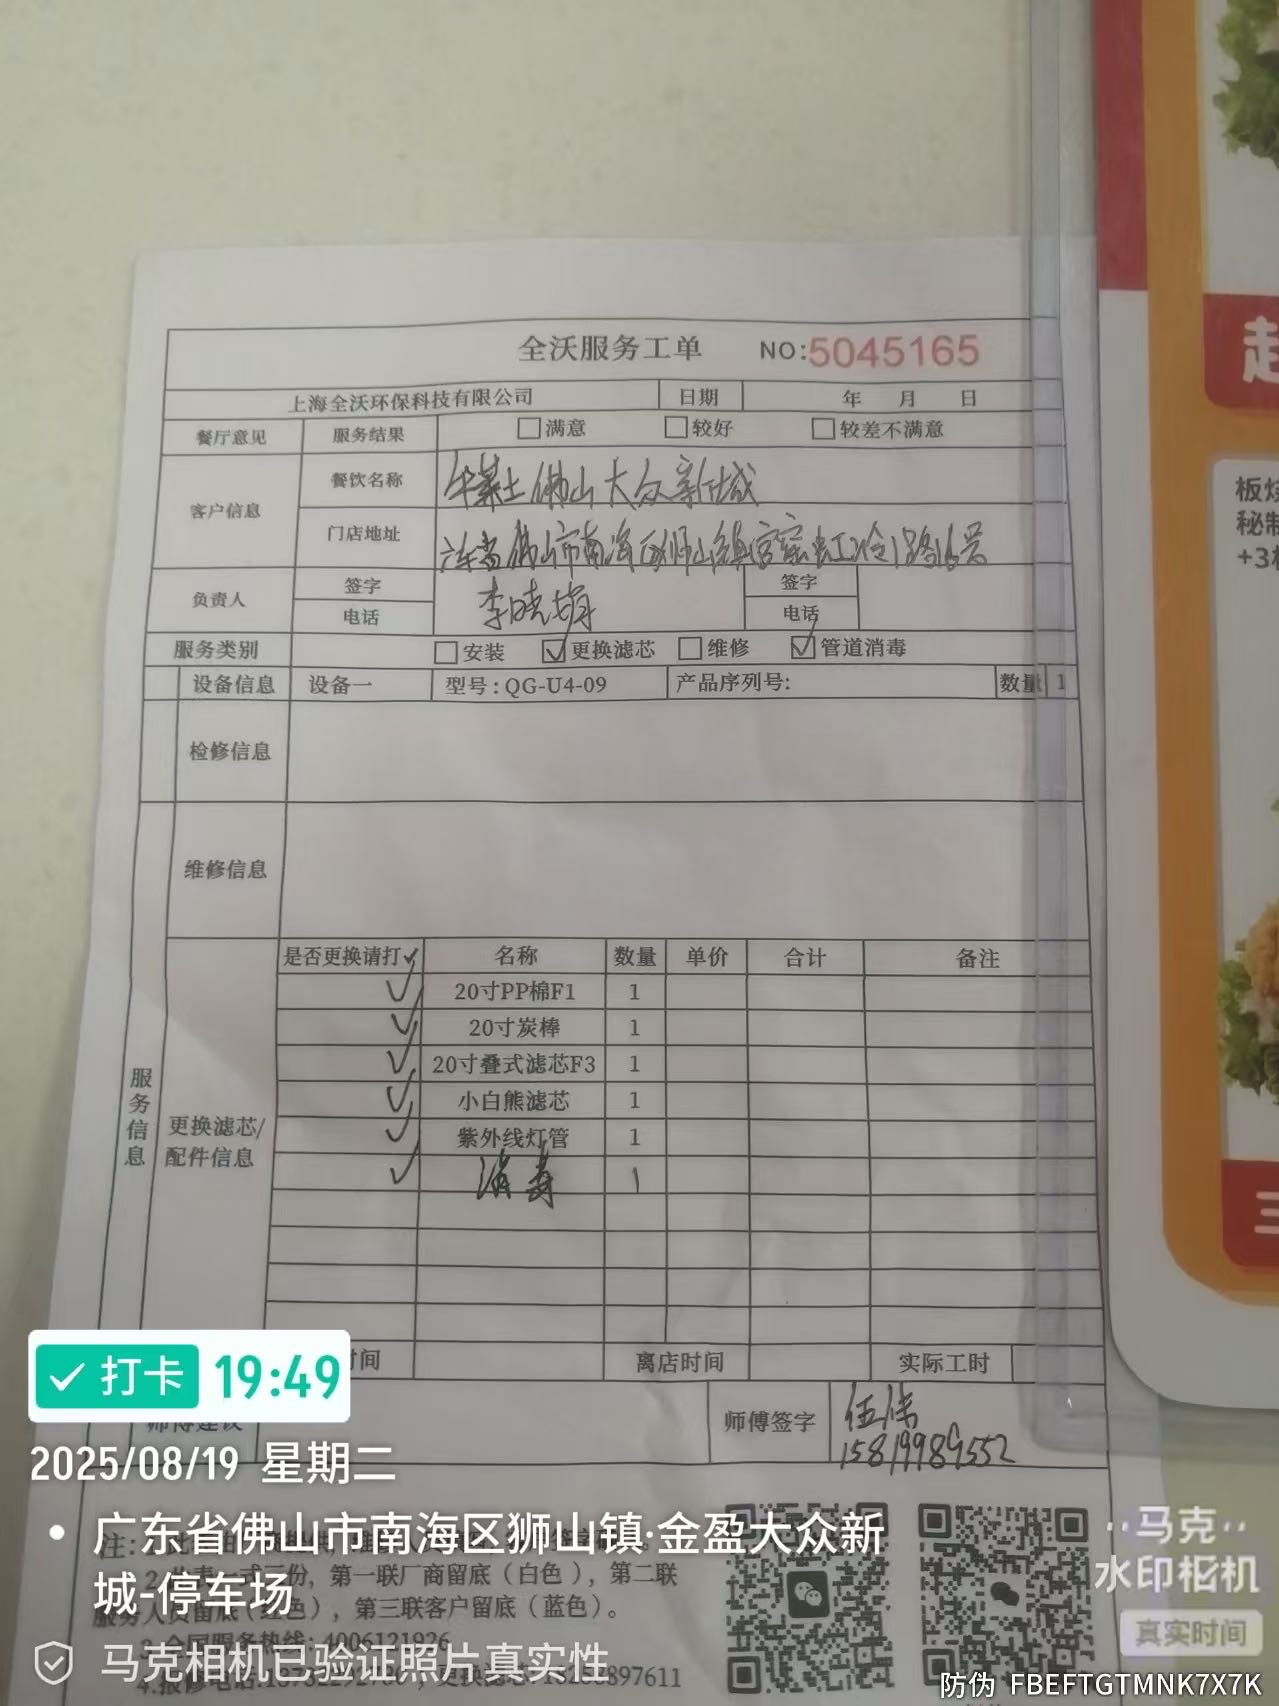 全沃服务工单 NO:5045165
上海全沃环保科技有限公司 日期 年 月 日
餐厅意见 服务结果 □满意 □较好 □较差不满意
客户信息 餐饮名称 佛山大众新城
门店地址 佛山市南海区狮山镇官窑
负责人 签字 李晓娟 签字
电话 电话
服务类别 □安装 ☑更换滤芯 □维修 ☑管道消毒
设备信息 设备一 型号:QG-U4-09 产品序列号: 数量 1
检修信息
维修信息
服务信息
更换滤芯/配件信息
是否更换请打✓ 名称 数量 单价 合计 备注
✓ 20寸PP棉F1 1
✓ 20寸炭棒 1
✓ 20寸叠式滤芯F3 1
✓ 小白熊滤芯 1
✓ 紫外线灯管 1
✓ 消毒 1
时间 离店时间 实际工时
师傅建议 师傅签字 伍伟
15819989552
注:
份,第一联厂商留底(白色),第二联
服务人员留底(红色),第三联客户留底(蓝色)。
3.全国服务热线:4006121926
4.报修电话: 更换滤芯: 897611
打卡 19:49
2025/08/19 星期二
广东省佛山市南海区狮山镇·金盈大众新
城-停车场
马克相机已验证照片真实性
马克
水印相机
真实时间
防伪 FBEFTGTMNK7X7K
板烧
秘制
+3
三